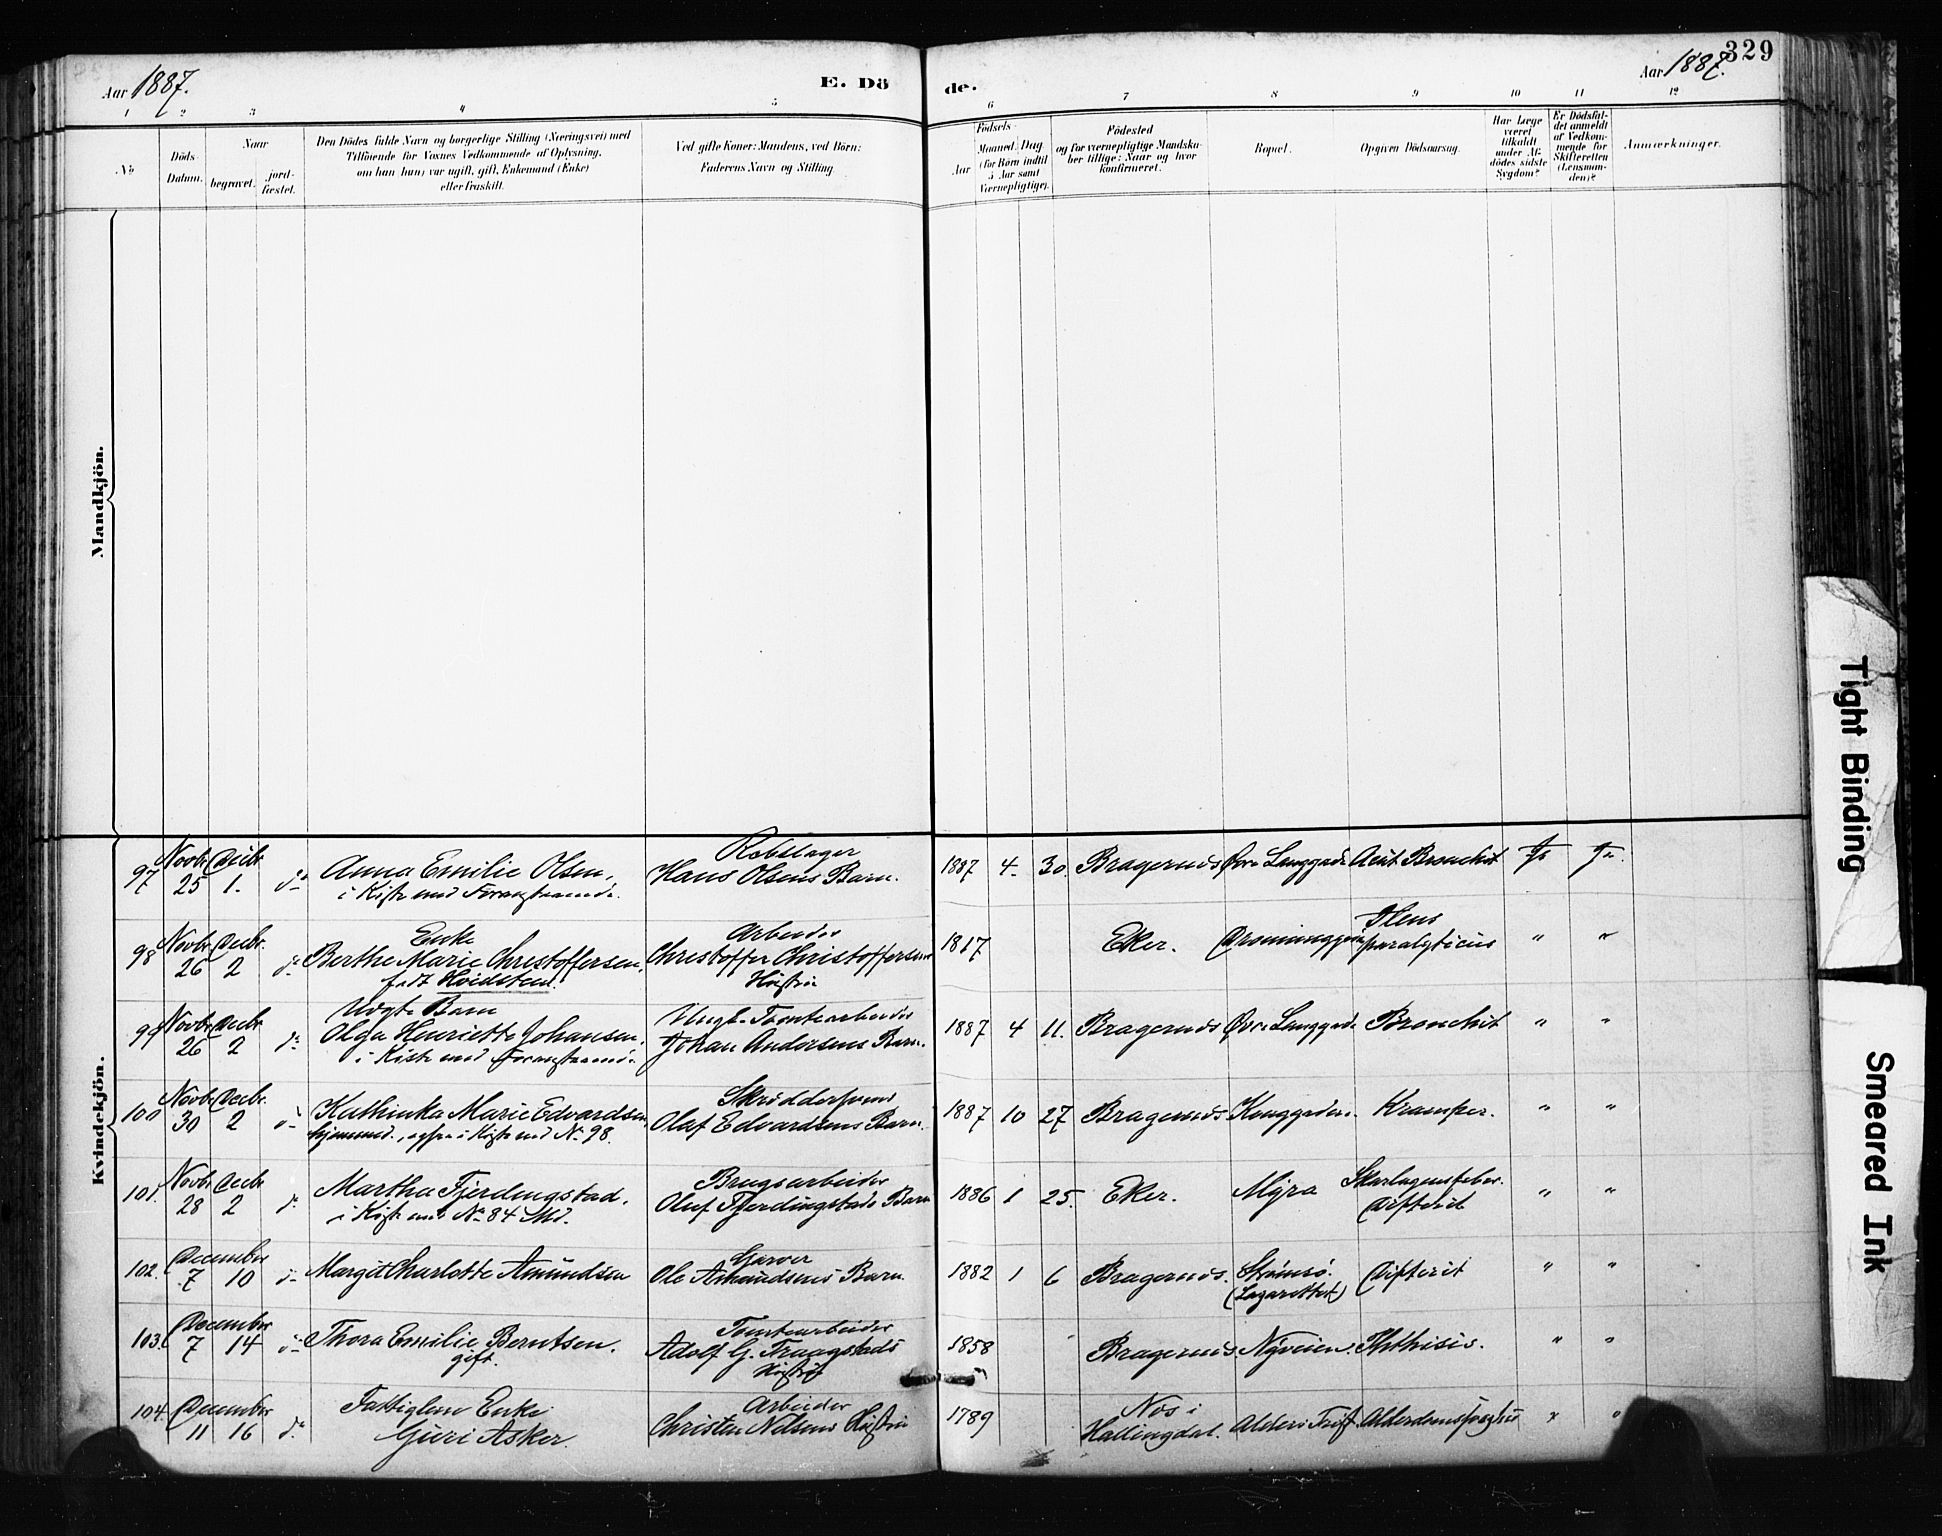 329
Aar 1887.
E. Dö
de.
Aar 1887.
1 2 3 4 5 6 7 8 9 10 11 12
No
Döds-
Datum.
Naar
begravet.
jord-
fæstet.
Den Dödes fulde Navn og borgerlige Stilling (Næringsvei) med
Tilföiende for Voxnes Vedkommende af Oplysning,
om han (hun) var ugift, gift, Enkemand (Enke)
eller fraskilt.
Ved gifte Koner: Mandens, ved Börn:
Faderens Navn og Stilling.
Födsels-
Aar
Maaned. Dag
(for Börn indtil
5 Aar samt
Værnepligtige).
Födested
og for værnepligtige Mandska-
ber tillige: Naar og hvor
konfirmeret.
Bopæl.
Opgiven Dödsaarsag.
Har Læge
været
tilkaldt
under Af-
dödes sidste
Sygdom?
Er Dödsfal-
det anmeldt
af Vedkom-
mende for
Skifteretten
(Lensman-
den)?
Anmærkninger.
Mandkjön.
Kvindekjön.
97 Novbr 25 Decbr 1. do Anna Emilie Olsen,
i Kiste med
Rebslager
Hans Olsens Barn.
1887 4 30. Bragernes Øvre Langgade Acut Bronchit Ja Ja.
98 Novbr. 26 Decbr. 2 do Enke
Berthe Marie Christoffersen,
født
Arbeider
Christoffer Christoffersens
Hustru
1817 Eker. Ileus
paralyticus " "
99 Novbr 26 Decbr 2 do Uægte Barn
Olga Henriette Johansen,
i Kiste med
Ungk. Tomtearbeider
Johan Andersens Barn.
1887 4 11. Bragernes Øvre Langgade Bronchit " "
100 Novbr 30 Decbr. 2 do Kathinka Marie Edvardsen
hjemmed., i Kiste med No 98.
Skræddersvend
Olaf Edvardsens Barn.
1887 10 27 Bragernes Konggaden. Kramper. " "
101. Novbr 28 Decbr 2 do Martha Fjerdingstad.
i Kiste med No 84 Md.
Brugsarbeider
Oluf Fjerdingstads Barn
1886 1 25. Eker. Myra Skarlagensfeber.
Difterit " "
102. December 7 10 do Margit Charlotte Amundsen
Garver
Ole Amundsens Barn.
1882 1 6 Bragernes. Strømsø.
(Lazarettet) Difterit " "
103. December 7 14 do Thora Emilie Berntsen.
gift.
Tomtearbeider
Adolf G. Traagstads
Hustru
1858 Bragernes. Nyveien. Phthisis. " "
104. December 11 16 do Fattiglem Enke
Guri Asker.
Arbeider
Christen Nilsens Hustru
1789 Nes i
Hallingdal. Alderdomssvaghed " "
Tight Binding
Smeared Ink